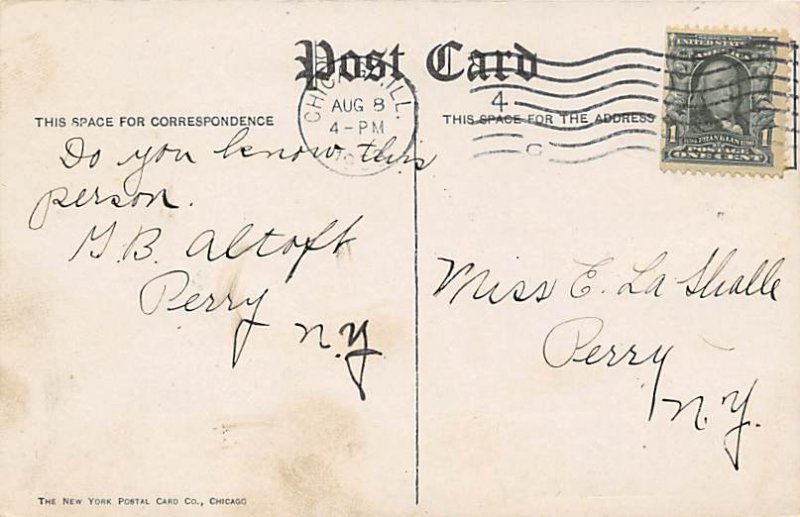 Post Card
CHICAGO, ILL.
AUG 8
4-PM
4
C
THIS SPACE FOR CORRESPONDENCE
THIS SPACE FOR THE ADDRESS
UNITED STATES OF AMERICA
FRANKLIN
1
POSTAGE
ONE CENT
Do you know this
person.
G.B. Altoft
Perry
N.Y
Miss E. La Shalle
Perry
N.Y.
THE NEW YORK POSTAL CARD CO., CHICAGO